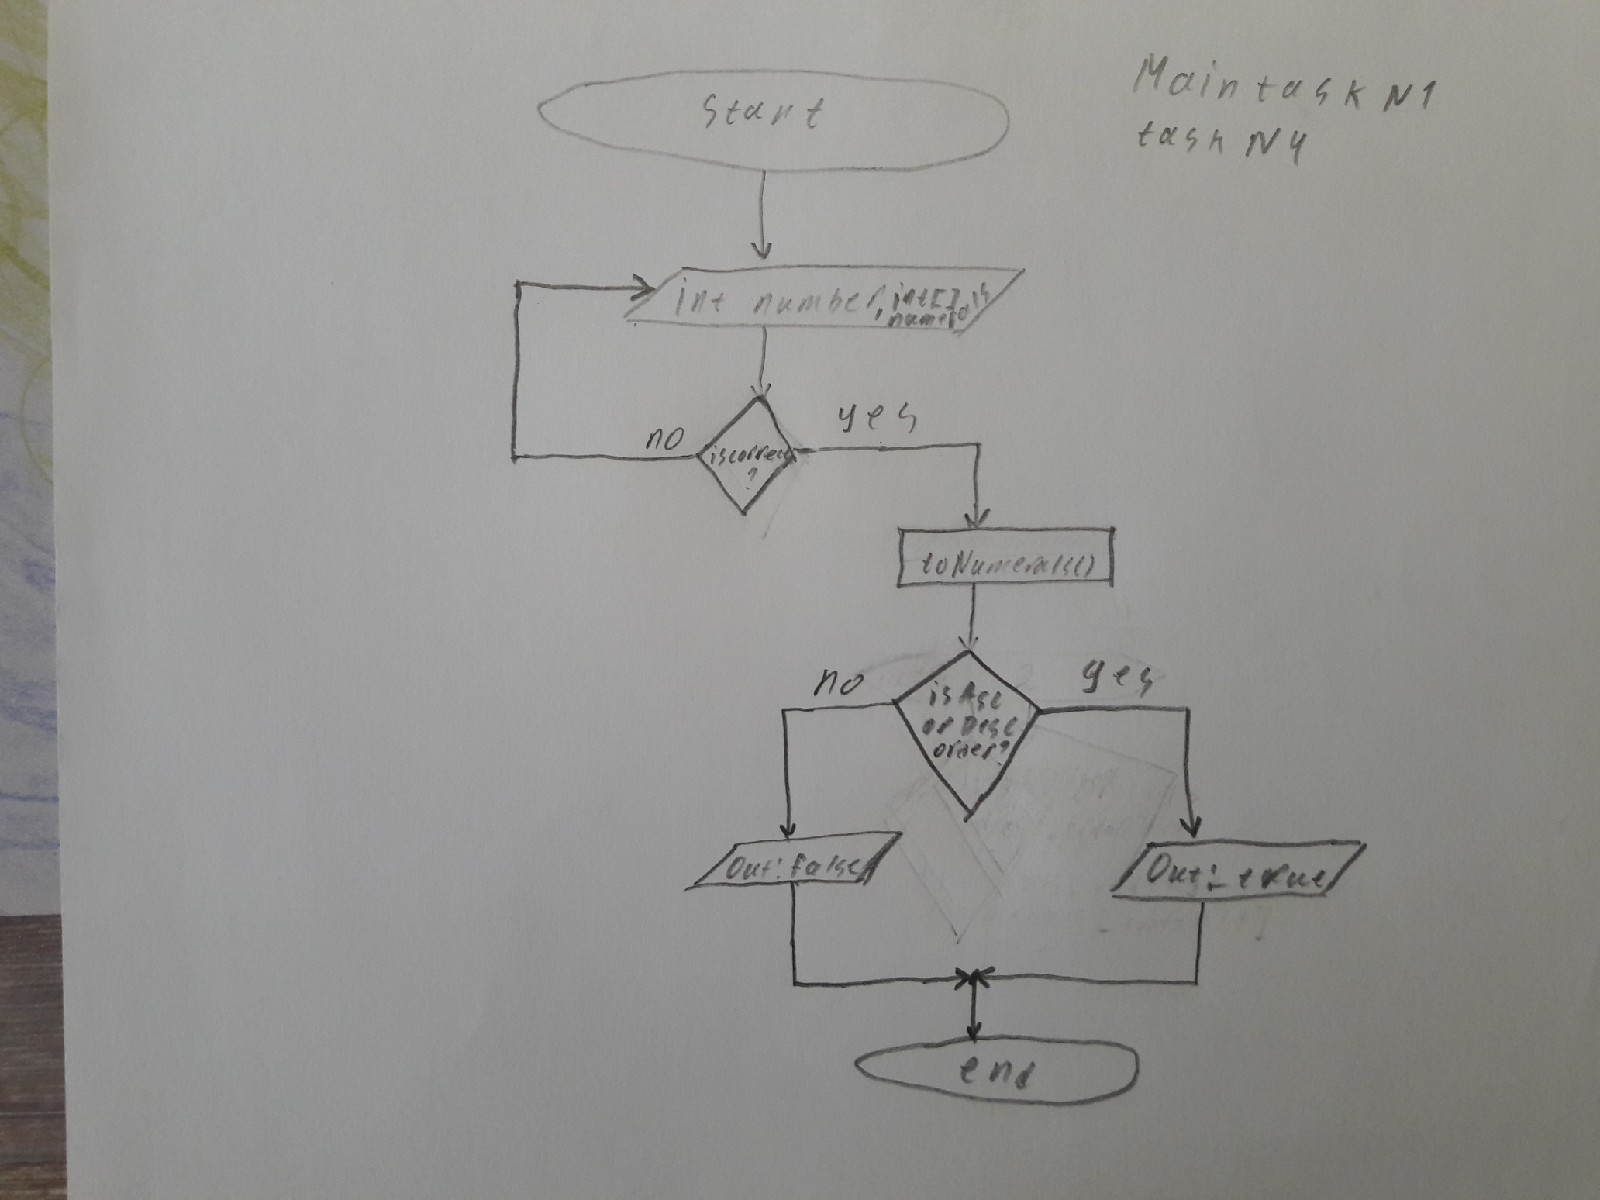 Main task N1
task N4
start
int number, int[]
no
yes
iscorrect
?
toNumerals()
no
yes
is Asc
or Desc
order?
Out: false
Out: true
end